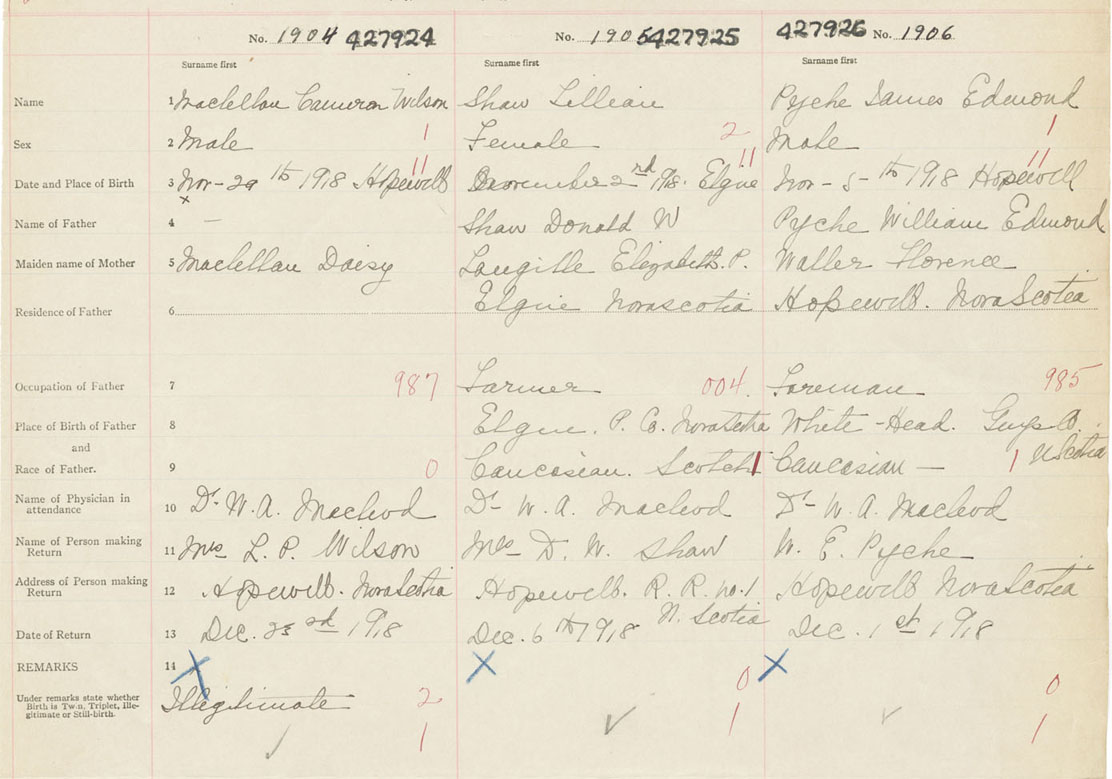 No. 1904 427924 No. 1905 427925 427926 No. 1906
Surname first Surname first Surname first
Name 1 Maclellan Cameron Wilson Shaw Lillian Pyche James Edmond
Sex 2 Male 1 Female 2 Male 1
Date and Place of Birth 3 Nov- 29th 1918 Hopewell 11 November 2rd 1918. Elgin 11 Nov- 5-th 1918 Hopewell 11
x
Name of Father 4 — Shaw Donald W Pyche William Edmond
Maiden name of Mother 5 Maclellan Daisy Langille Elizabeth. P. Waller Florence
Residence of Father 6 Elgin Novascotia Hopewell. Nova Scotia
Occupation of Father 7 987 Farmer 004. Foreman 985
Place of Birth of Father 8 Elgin. P. Co. Novascotia White-Head. Guys Co.
and
Race of Father. 9 0 Caucasian. Scotch 1 Caucasian — 1 N Scotia
Name of Physician in
attendance 10 Dr- W. A. Macleod Dr- W. A. Macleod Dr- W. A. Macleod
Name of Person making
Return 11 Mrs L. P. Wilson Mrs D. W. Shaw W. E. Pyche
Address of Person making
Return 12 Hopewell. NovaScotia Hopewell. R. R. no. 1 Hopewell NovaScotia
N. Scotia
Date of Return 13 Dec. 23rd 1918 Dec. 6th 1918 Dec. 1st 1918
REMARKS 14 X X X
Under remarks state whether
Birth is Twin, Triplet, Ille-
gitimate or Still-birth. Illegitimate 2 0 0
1 1 1